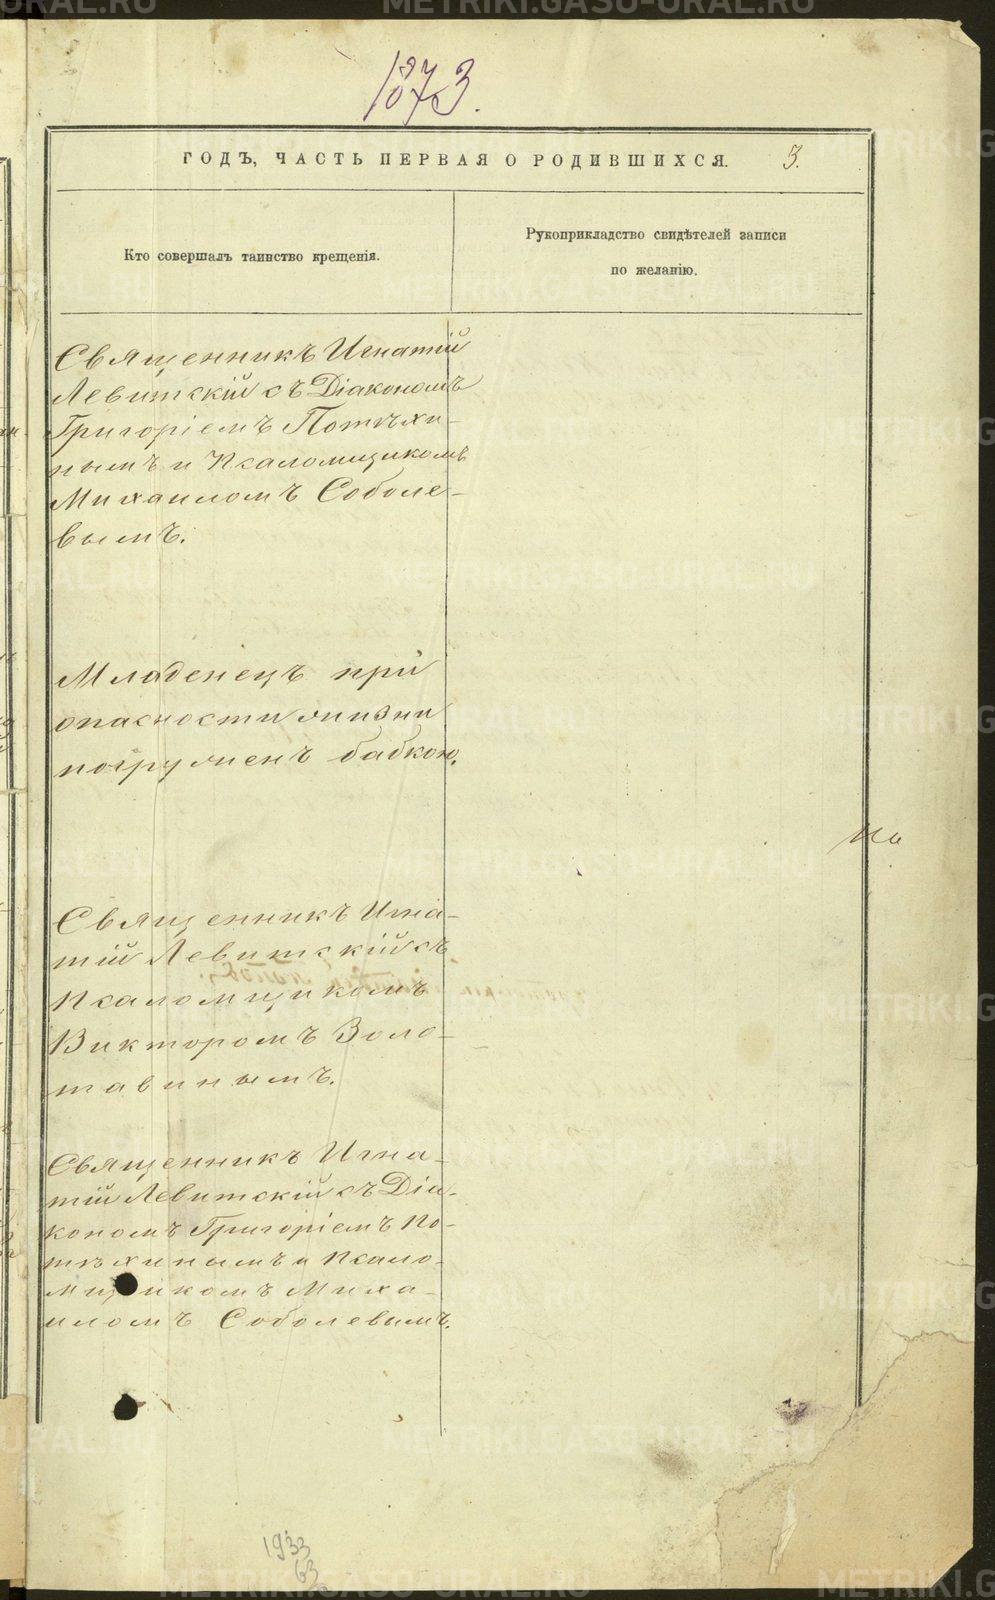 METRIKI.GASU-URAL.RU
1873.
ГОДЪ, ЧАСТЬ ПЕРВАЯ О РОДИВШИХСЯ. 3.
Кто совершалъ таинство крещенія.
Рукоприкладство свидѣтелей записи
по желанію.
Священникъ Игнатій
Левитскій съ Діакономъ
Григоріемъ Потѣхи-
нымъ и Псаломщикомъ
Михаиломъ Соболе-
вымъ.
Младенецъ при
опасности жизни
погруженъ бабкою.
Священникъ Игна-
тій Левитскій съ
Псаломщикомъ
Викторомъ Золо-
тавинымъ.
Священникъ Игна-
тій Левитскій съ Діа-
кономъ Григоріемъ По-
тѣхинымъ и Псало-
мщикомъ Миха-
иломъ Соболевымъ.
1933
63